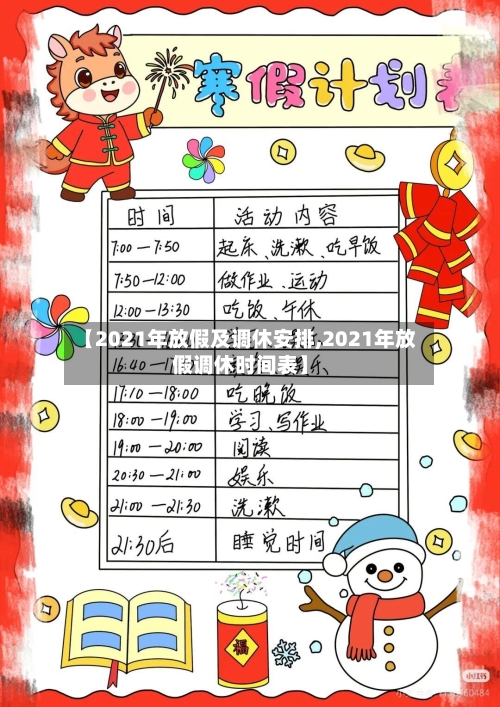 寒假计划表
时间 活动内容
7:00—7:50 起床、洗漱、吃早饭
7:50—12:00 做作业、运动
12:00—13:30 吃饭、午休
【2021年放假及调休安排,2021年放
假调休时间表】
16:40—17
17:10—18:00 吃晚饭
18:00—19:00 学习、写作业
19:00—20:00 阅读
20:30—21:00 娱乐
21:00—21:30 洗漱
21:30后 睡觉时间
福
小红书